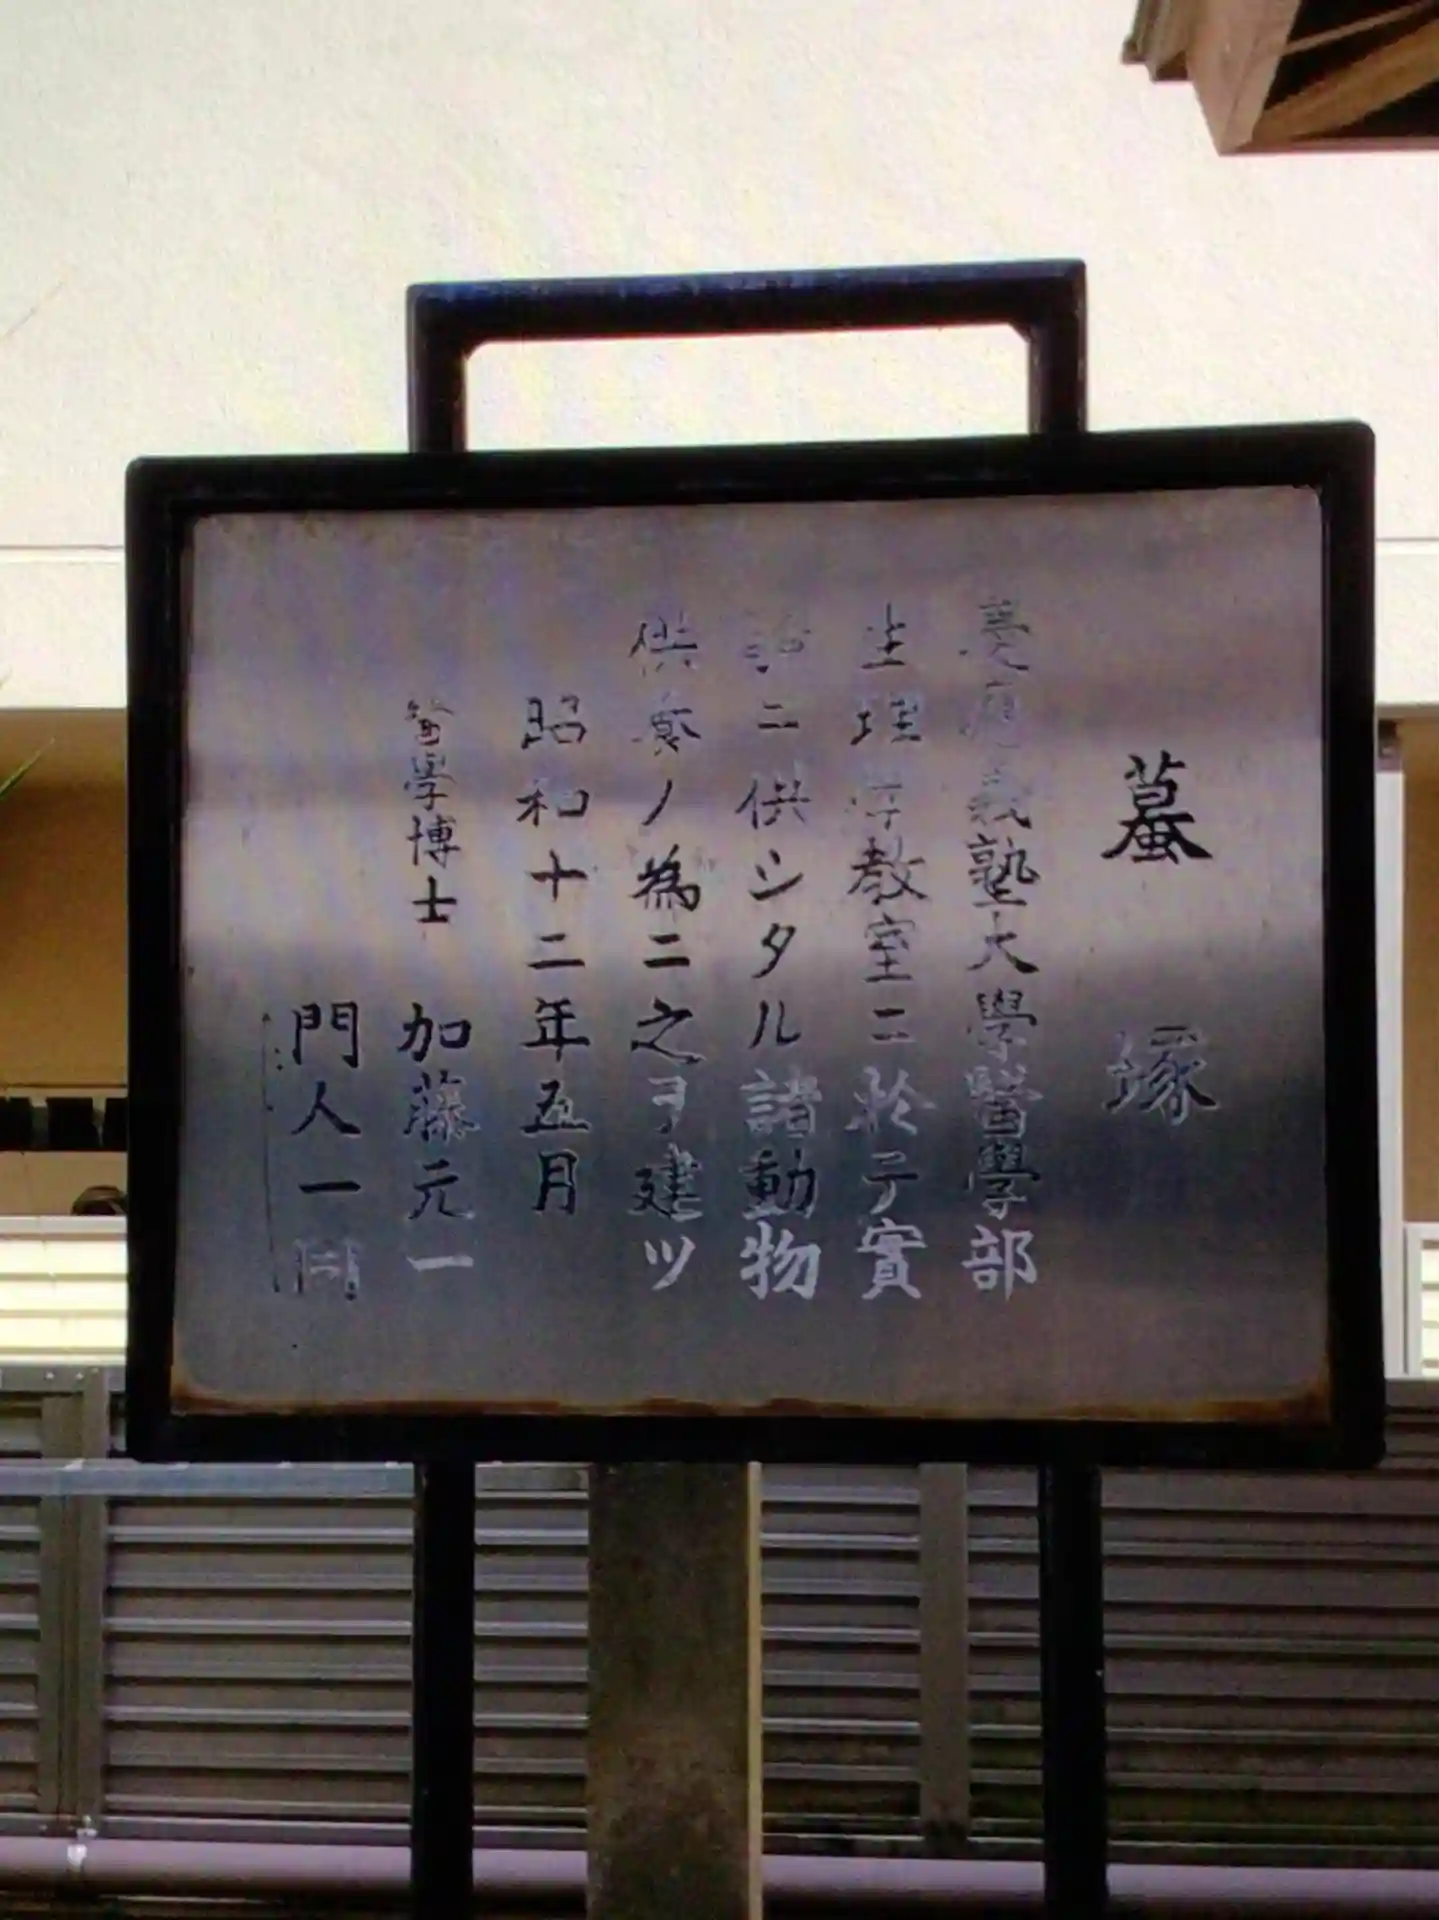 蟇塚
慶應義塾大學醫學部
生理学教室ニ於テ實
験ニ供シタル諸動物
供養ノ為ニ之ヲ建ツ
昭和十二年五月
醫學博士 加藤元一
門人一同